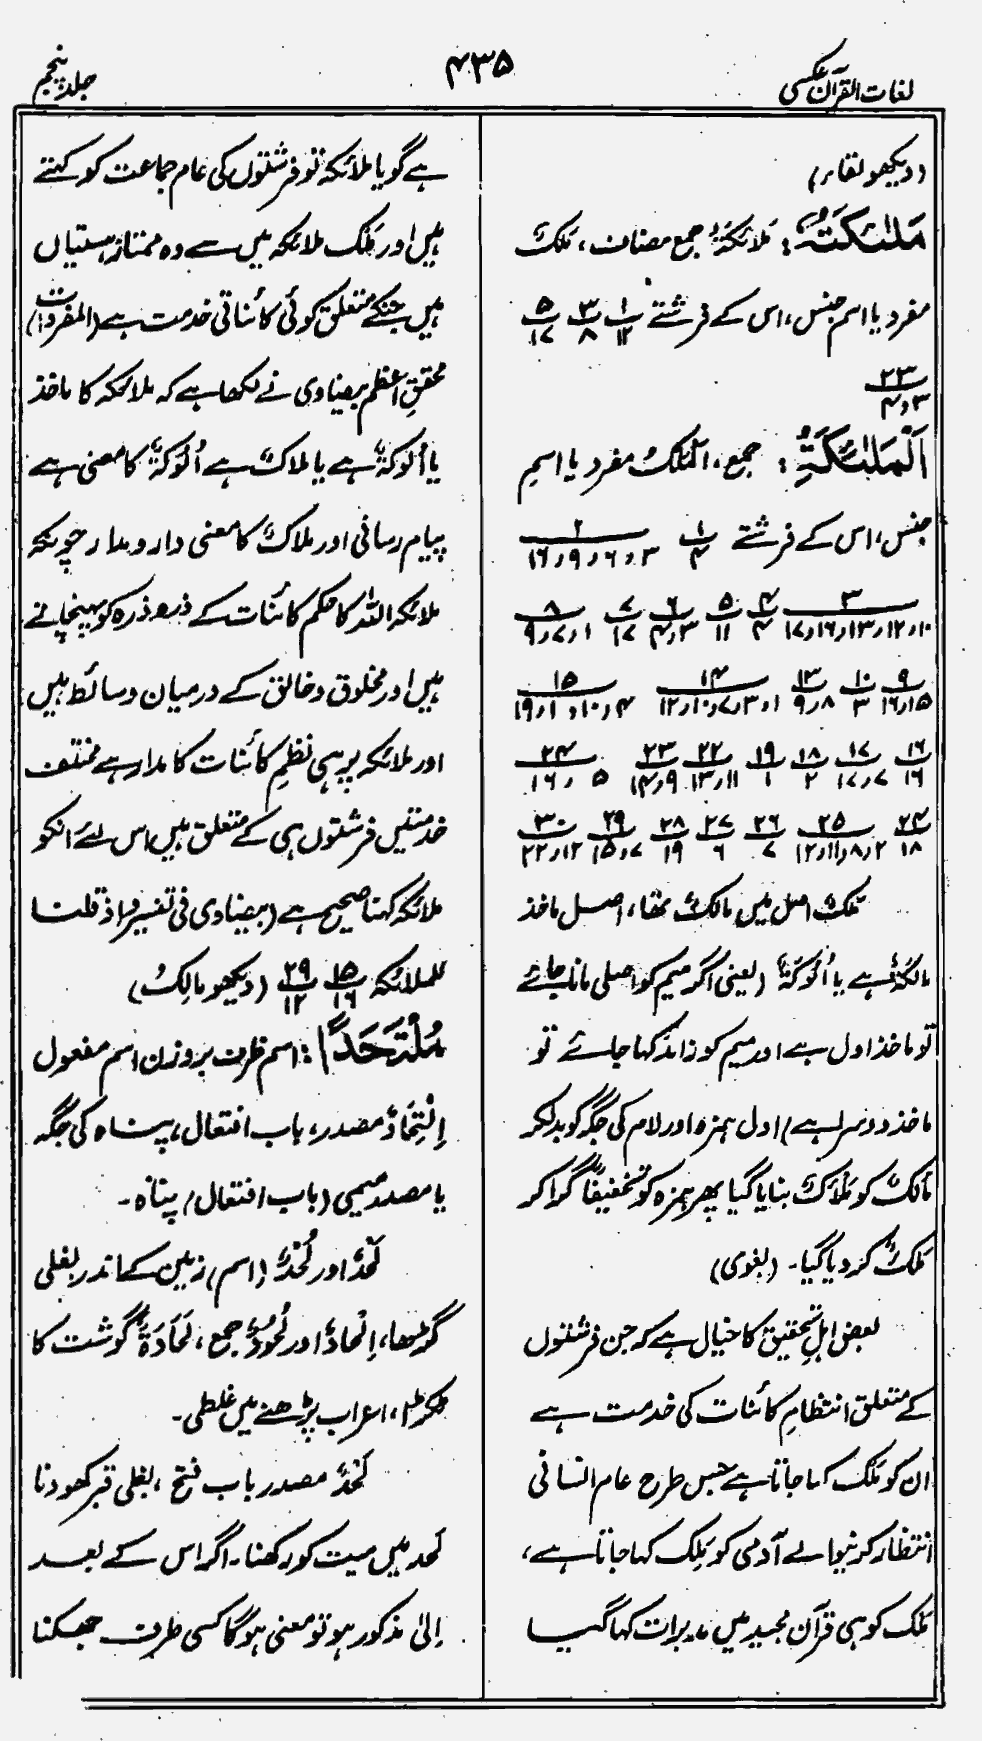 لغات القرآن عکسی
۴۳۵
جلد پنجم
(دیکھو لقاء)
مَلٰئِكَتُہٗ: مَلَائِکَۃُ جمع مضاف، مَلَکٌ
مفرد یا اسم جنس، اس کے فرشتے ۱/۱۲ ۳/۸ ۵/۱۷
۲۳/۳و۴
اَلْمَلٰئِکَۃِ: جمع، اَلْمَلَکُ مفرد یا اسمِ
جنس، اس کے فرشتے ۱/۴ ۲/۳و۶و۹و۱۶
۳/۱۰و۱۲و۱۳و۱۶و۱۷ ۴/۴ ۵/۱۱ ۶/۳و۴ ۷/۱۷ ۸/۱و۷و۹
۹/۱۵و۱۶ ۱۰/۳ ۱۳/۸و۹ ۱۴/۱و۳و۷و۱۰و۱۲ ۱۵/۴و۱۰و۱و۱۹
۱۶/۱۶ ۱۷/۷و۱۷ ۱۸/۲ ۱۹/۱ ۲۲/۱۱و۱۳ ۲۳/۹و۱۴ ۲۴/۵و۱۶
۲۴/۱۸ ۲۵/۲و۸و۱۱و۱۲ ۲۶/۷ ۲۷/۶ ۲۸/۱۹ ۲۹/۷و۱۵ ۳۰/۱۲و۲۲
مَلَکٌ اصل میں مَالَکٌ تھا، اصل ماخذ
مَالَکَۃٌ ہے یا اُلُوکَۃٌ (یعنی اگر میم کو اصلی مانا جائے
تو ماخذ اول ہے اور میم کو زائد کہا جائے تو
ماخذ دوسرا ہے) اول ہمزہ اور لام کی جگہ کو بدلکر
مَالَکٌ کو مَلْاَکٌ بنایا گیا پھر ہمزہ کو تخفیفاً گرا کر
مَلَکٌ کر دیا گیا۔ (بغوی)
بعض اہلِ تحقیق کا خیال ہے کہ جن فرشتوں
کے متعلق انتظامِ کائنات کی خدمت ہے
ان کو مَلَک کہا جاتا ہے جس طرح عام انسانی
انتظار کرنیوالے آدمی کو مَلِک کہا جاتا ہے،
مَلَک کو ہی قرآن مجید میں مدبرات کہا گیا
ہے گویا ملائکہ تو فرشتوں کی عام جماعت کو کہتے
ہیں اور مَلَک ملائکہ میں سے وہ ممتاز ہستیاں
ہیں جنکے متعلق کوئی کائناتی خدمت ہے (المفردات)
محققِ اعظم بیضاوی نے لکھا ہے کہ ملائکہ کا ماخذ
یا اُلُوکَۃٌ ہے یا مَلاکٌ ہے اُلُوکَۃٌ کا معنی ہے
پیام رسانی اور مَلاکٌ کا معنی دار و مدار چونکہ
ملائکہ اللہ کا حکم کائنات کے ذرہ ذرہ کو پہنچاتے
ہیں اور مخلوق و خالق کے درمیان وسائط ہیں
اور ملائکہ پر ہی نظمِ کائنات کا مدار ہے مختلف
خدمتیں فرشتوں ہی کے متعلق ہیں اس لئے انکو
ملائکہ کہنا صحیح ہے (بیضاوی فی تفسیر و اذ قلنا
للملائکۃ ۱۵/۱۶ ۲۹/۱۲ (دیکھو مالِکُ)
مُلْتَحَدًا: اسم ظرف بروزن اسم مفعول
اِلْتِحَادٌ مصدر، باب افتعال، پناہ کی جگہ
یا مصدر میمی (باب افتعال) پناہ۔
لَحْدٌ اور لُحْدٌ (اسم) زمین کے اندر بغلی
گڑھا، اِلْحَادٌ اور لُحُودٌ جمع، لَحَادَۃٌ گوشت کا
ٹکڑا، اعراب پڑھنے میں غلطی۔
لَحْدٌ مصدر باب فتح، بغلی قبر کھودنا
لحد میں میت کو رکھنا۔ اگر اس کے بعد
اِلیٰ مذکور ہو تو معنی ہوگا کسی طرف جھکنا